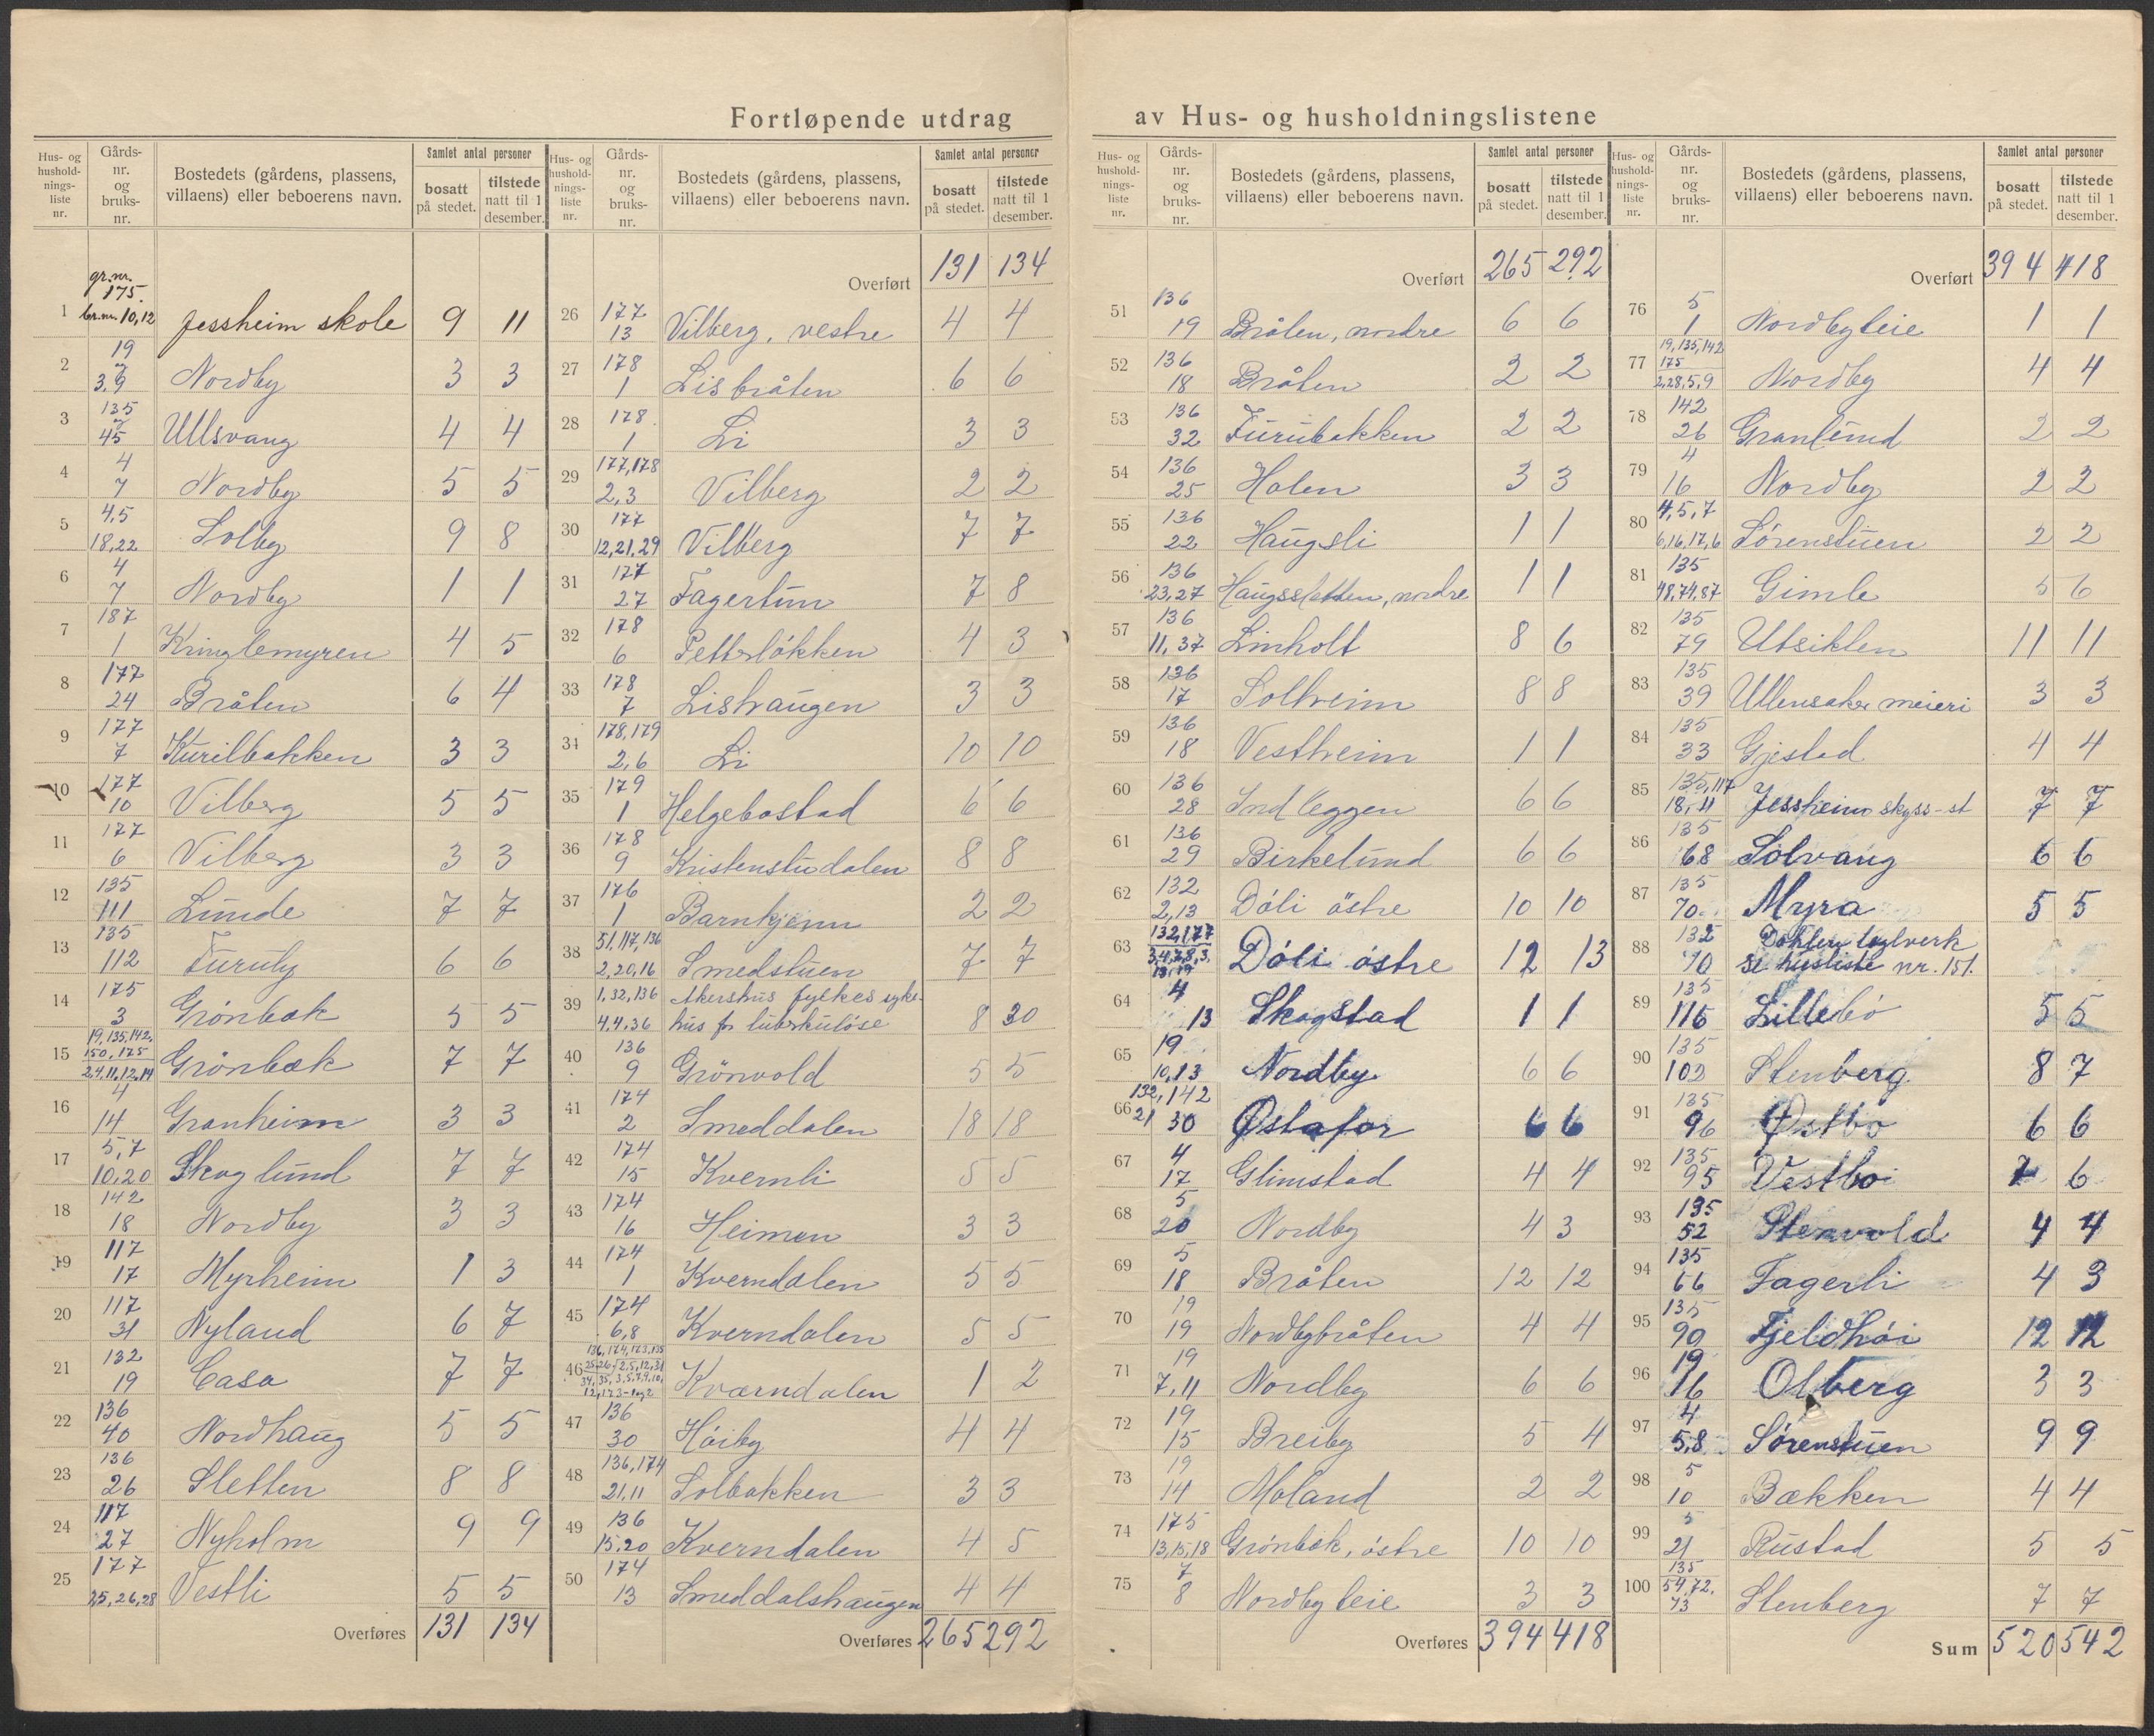 Fortløpende utdrag av Hus- og husholdningslistene
Hus- og hushold-nings-liste nr. | Gårds-nr. og bruks-nr. | Bostedets (gårdens, plassens, villaens) eller beboerens navn. | Samlet antal personer: bosatt på stedet. | tilstede natt til 1 desember.
1 gr.nr. 175. br.nr. 10,12 Jessheim skole 9 11
2 19 3.9 Nordby 3 3
3 135 45 Ullsvang 4 4
4 4 7 Nordby 5 5
5 4,5 18,22 Solby 9 8
6 4 7 Nordby 1 1
7 187 1 Kringlemyren 4 5
8 177 24 Bråten 6 4
9 177 7 Kurilbakken 3 3
10 177 10 Vilberg 5 5
11 177 6 Vilberg 3 3
12 135 111 Lunde 7 7
13 135 112 Furuly 6 6
14 175 3 Grønbæk 5 5
15 19,135,142, 150,175 2,4,11,12,14 Grønbæk 7 7
16 4 14 Granheim 3 3
17 5,7 10,20 Skoglund 7 7
18 142 18 Nordby 3 3
19 117 17 Myrheim 1 3
20 117 31 Nyland 6 7
21 132 19 Casa 7 7
22 136 40 Nordhaug 5 5
23 136 26 Sletten 8 8
24 117 27 Nyholm 9 9
25 177 25,26,28 Vestli 5 5
Overføres 131 134
Hus- og hushold-nings-liste nr. | Gårds-nr. og bruks-nr. | Bostedets (gårdens, plassens, villaens) eller beboerens navn. | Samlet antal personer: bosatt på stedet. | tilstede natt til 1 desember.
Overført 131 134
26 177 13 Vilberg, vestre 4 4
27 178 1 Lisbråten 6 6
28 178 1 Li 3 3
29 177,178 2,3 Vilberg 2 2
30 177 12,21,29 Vilberg 7 7
31 177 27 Fagertun 7 8
32 178 6 Petterløkken 4 3
33 178 7 Lishaugen 3 3
34 178,179 2,6 Li 10 10
35 179 1 Helgebostad 6 6
36 178 9 Kristenstudalen 8 8
37 176 1 Barnkjenn 2 2
38 51,117,136 2,20,16 Smedstuen 7 7
39 1,32,136 4,4,36 Akershus fylkes syke-
hus for tuberkuløse 8 30
40 136 9 Grönvold 5 5
41 174 2 Smeddalen 18 18
42 174 15 Kvernli 5 5
43 174 16 Heimen 3 3
44 174 1 Kverndalen 5 5
45 174 6,8 Kverndalen 5 5
46 Kværndalen 1 2
47 136 30 Høiby 4 4
48 136,174 21,11 Solbakken 3 3
49 136 15,20 Kverndalen 4 5
50 174 13 Smeddalshaugen 4 4
Overføres 265 292
Hus- og hushold-nings-liste nr. | Gårds-nr. og bruks-nr. | Bostedets (gårdens, plassens, villaens) eller beboerens navn. | Samlet antal personer: bosatt på stedet. | tilstede natt til 1 desember.
Overført 265 292
51 136 19 Bråten, nordre 6 6
52 136 18 Bråten 2 2
53 136 32 Furubakken 2 2
54 136 25 Holen 3 3
55 136 22 Haugsli 1 1
56 136 23,27 Haugssletten, nordre 1 1
57 136 11,37 Linholt 8 6
58 136 17 Solheim 8 8
59 136 18 Vestheim 1 1
60 136 28 Indleggen 6 6
61 136 29 Birkelund 6 6
62 132 2,13 Døli östre 10 10
63 132,177 Døli østre 12 13
64 4 13 Skogstad 1 1
65 19 10,13 Nordby 6 6
66 132,142 21 30 Østafor 6 6
67 4 17 Glimstad 4 4
68 5 20 Nordby 4 3
69 5 18 Bråten 12 12
70 19 19 Nordbybråten 4 4
71 19 7,11 Nordby 6 6
72 19 15 Breiby 5 4
73 19 14 Moland 2 2
74 175 13,15,18 Grønbæk, østre 10 10
75 7 8 Nordbyeie 3 3
Overføres 394 418
Hus- og hushold-nings-liste nr. | Gårds-nr. og bruks-nr. | Bostedets (gårdens, plassens, villaens) eller beboerens navn. | Samlet antal personer: bosatt på stedet. | tilstede natt til 1 desember.
Overført 394 418
76 5 1 Nordbyeie 1 1
77 19,135,142 175 2,28,5,9 Nordby 4 4
78 142 26 Granlund 2 2
79 4 16 Nordby 2 2
80 4,5,7 6,16,17,6 Sørenstuen 2 2
81 135 48,74,87 Gimle 5 6
82 135 79 Utsikten 11 11
83 135 39 Ullensaker meieri 3 3
84 135 33 Gjestad 4 4
85 135,117 18,11 Jessheim skyss-st 7 7
86 135 68 Solvang 6 6
87 135 70 Myra 5 5
88 132 70 Døhlen teglverk
se husliste nr. 151.
89 135 116 Lillebø 5 5
90 135 102 Stenberg 8 7
91 135 96 Østbø 6 6
92 135 95 Vestbøi 7 6
93 135 52 Stenvold 4 4
94 135 66 Fagerli 4 3
95 135 90 Fjeldhøi 12 12
96 19 16 Olberg 3 3
97 4 5,8 Sørenstuen 9 9
98 5 10 Bækken 4 4
99 5 21 Rustad 5 5
100 135 54,72, 73 Stenberg 7 7
Sum 520 542